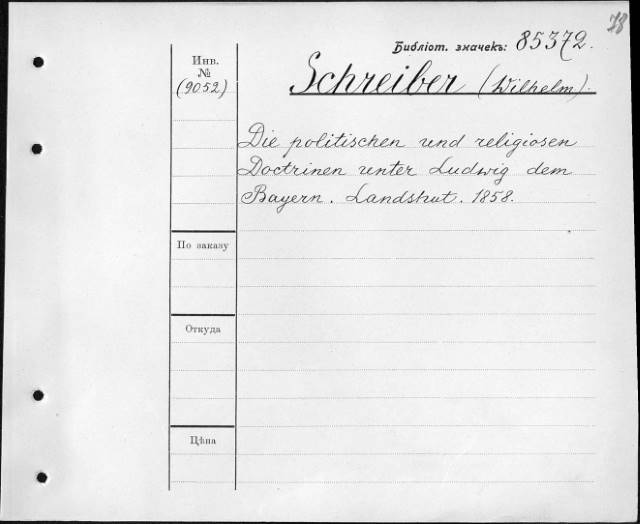 78
Библіот. значекъ: 85372.
Инв.
№
(9052)
Schreiber (Wilhelm).
Die politischen und religiosen
Doctrinen unter Ludwig dem
Bayern. Landshut. 1858.
По заказу
Откуда
Цѣна